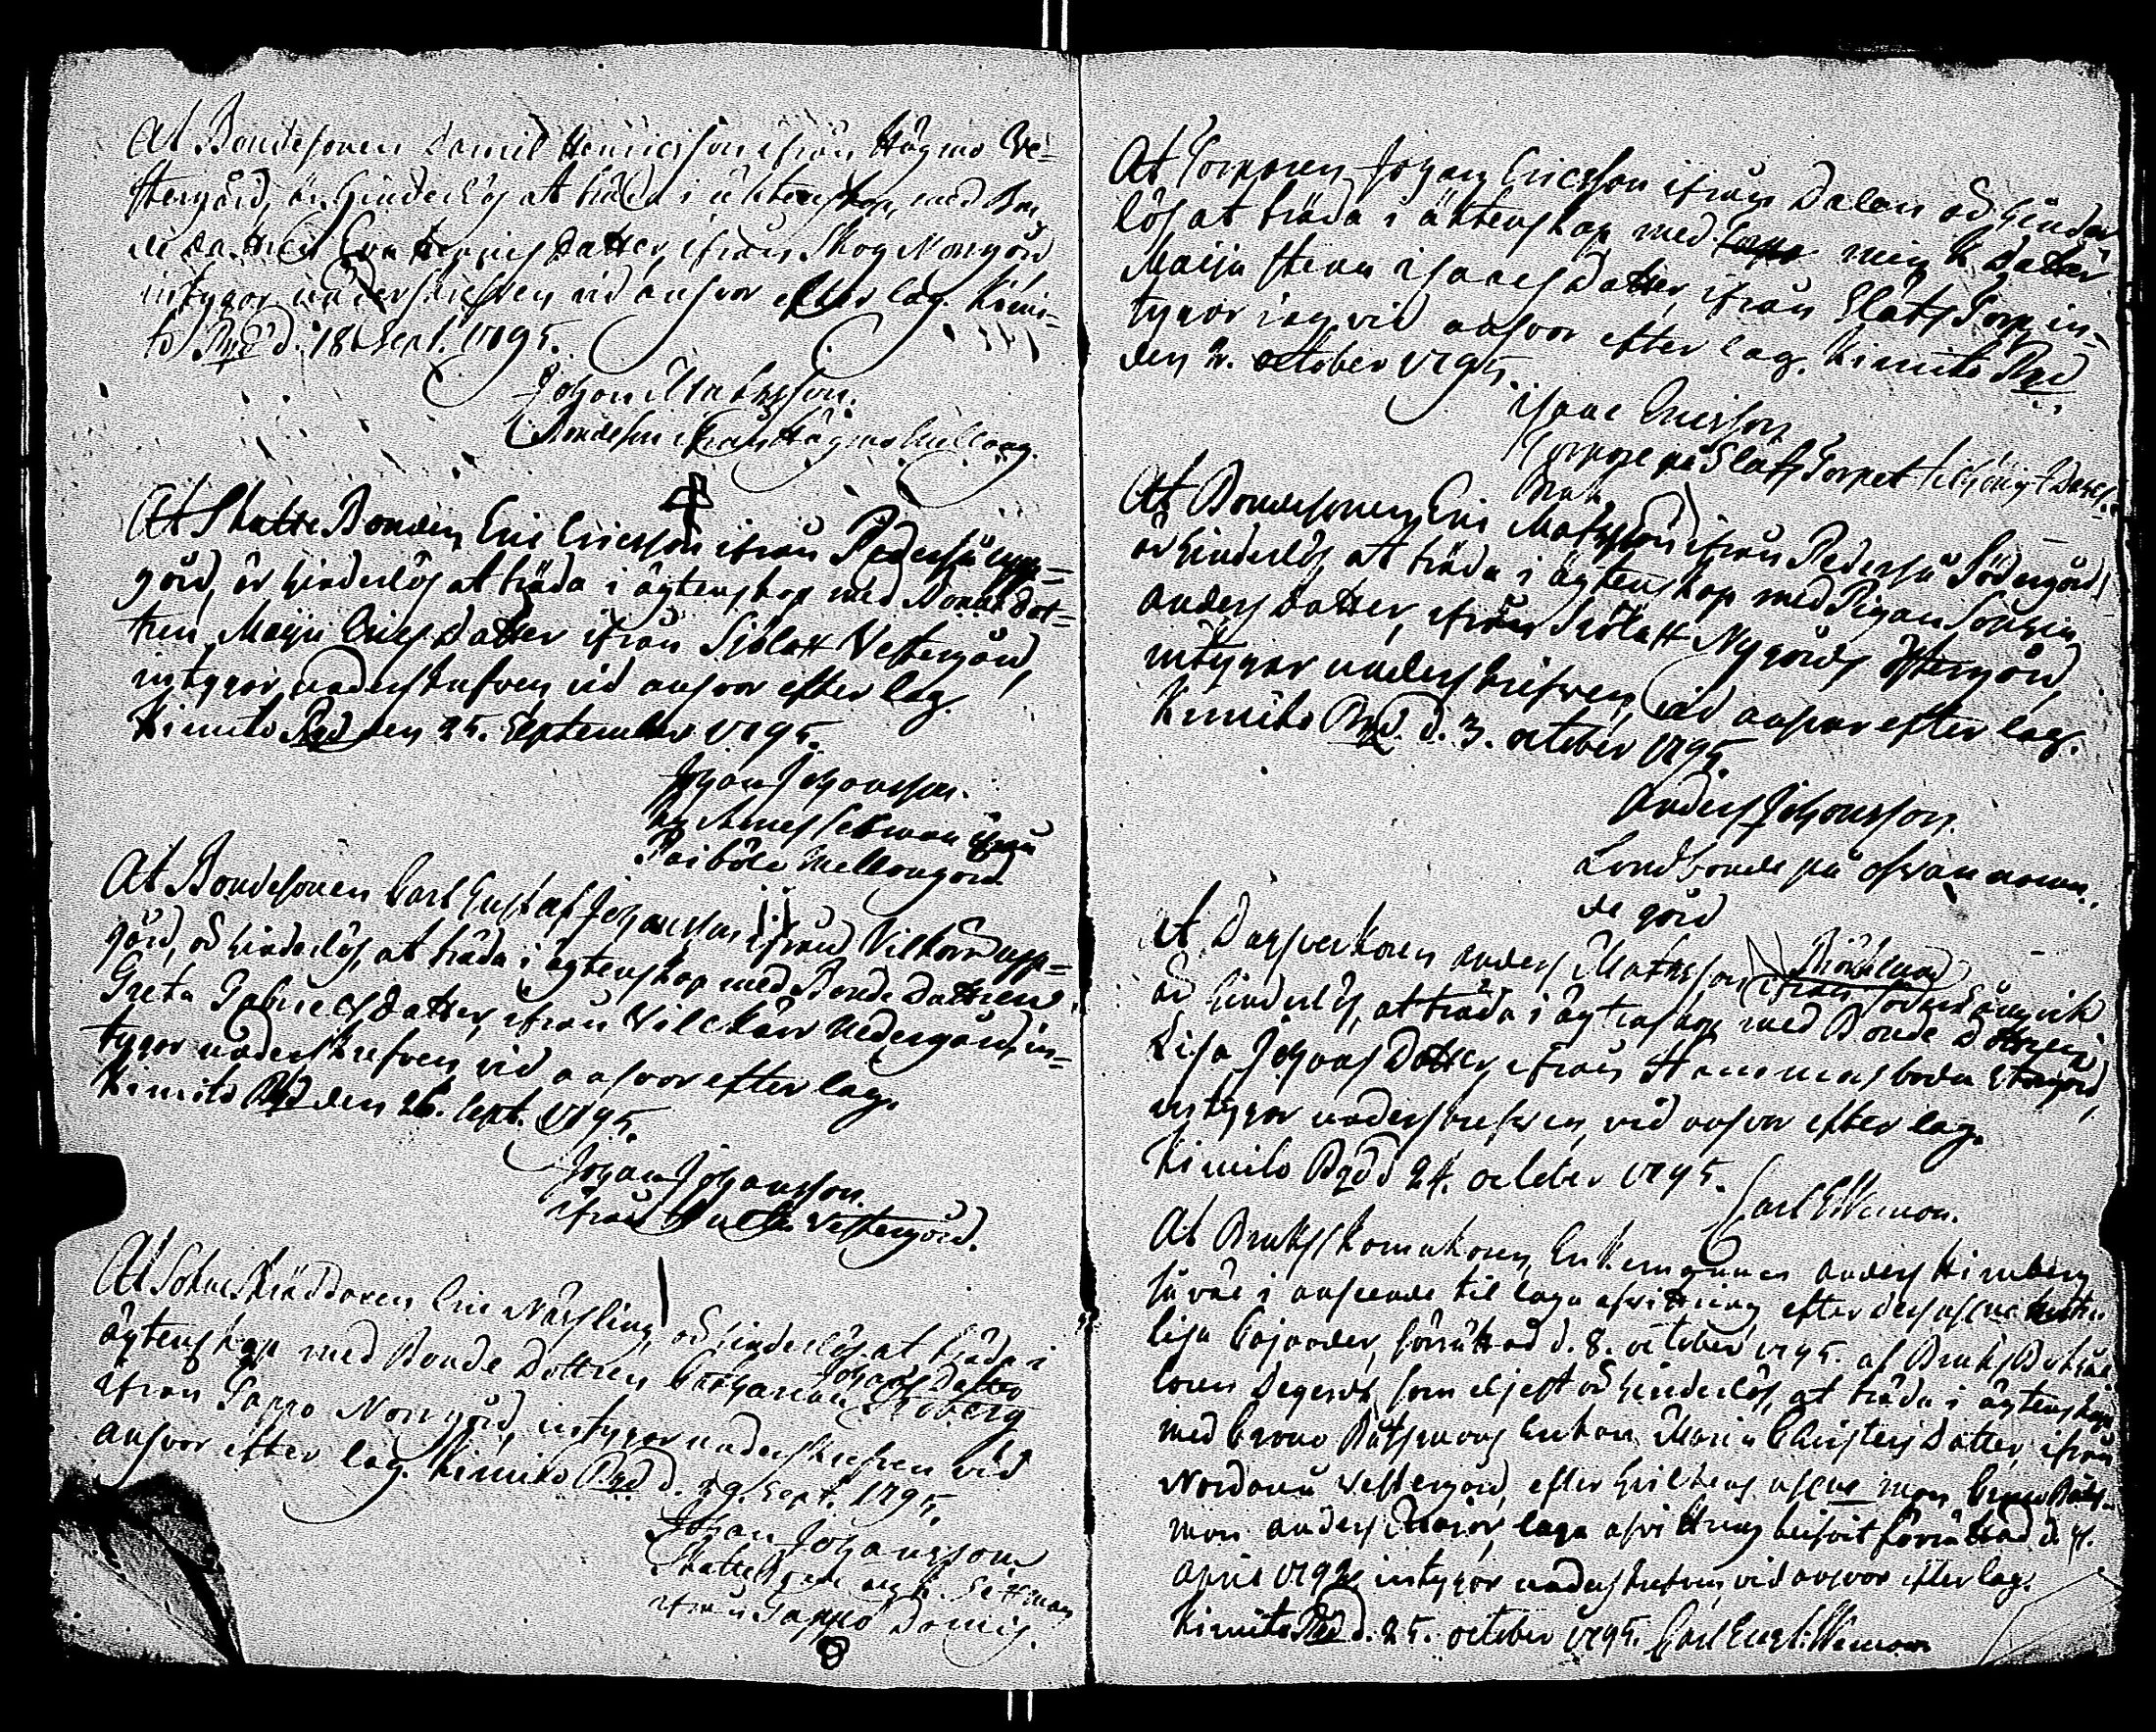 At Bondesonen Daniel Henricsson ifrån Högmo We-
stergård, är hinderlös at träda i ächtenskap, med Bon-
de dattren Eva Henrics Datter, ifrån Skog Norrgård
intygar underskrefven vid ansvar efter lag. Kimi-
to Pgd d. 18 Sept. 1795.
Johan Matsson.
Bondeson ifrån Högmo Mellang.
At Skatte Bonden Eric Ericsson ifrån Pederså upp-
gård, är hinderlös at träda i ägtenskap med Bonde dot-
tren Maija Erics Datter ifrån Sjölax Vestergård,
intygar underskrefven vid ansvar efter lag.
Kimito Pgd den 25. September 1795.
Johan Johansson.
ifrån
Paiböle Mellangård
At Bondesonen Carl Gustaf Johansson ifrån Vilkärr upp-
gård, är hinderlös, at träda i ägtenskap med Bonde Dattren
Greta Gabriels datter, ifrån Vilckärr Nedergård, in-
tygar underskrefven vid ansvar efter lag.
Kimito Pgd den 26. Sept. 1795.
Johan Johansson.
ifrån Vestergård.
At Sokne Skräddaren Eric Närfling, är hinderlös at träda i
ägtenskap med Bonde Dottren Catharina Johans Datter
ifrån Tappo Norrgård, intygar underskrefven vid
ansvar efter lag. Kimito Pgd d. 29. Sept. 1795.
Johan Johansson
Skattebonde och Sexman
ifrån Tappo
At Torparen Johan Ericsson ifrån Dalen är hinder-
lös at träda i äktenskap med min k. datter
Maija Stina Isaacs Datter, ifrån Slåts Torp, in-
tygar jag vid ansvar efter lag. Kimito Pgd
den 2. october 1795.
Isaac Ericsson
Torpare på Slåts Torpet
At Bondesonen Eric Matsson ifrån Pederså Södergård
är hinderlös at träda i ägtenskap med Pigan
Anders datter, ifrån Sjölax Nygårds Östergård,
intygar underskrifven, vid ansvar efter lag.
Kimito Pgd. d. 3. october 1795.
Anders Johansson.
Landbonde på ofvannäm-
de gård
At Dagsverkaren Anders Matsson Björkman
är hinderlös, at träda i ägtenskap med Bonde Dottren
Lisa Johans Dotter ifrån Hammarsboda
intygar underskrefven, vid ansvar efter lag.
Kimito Pgd d 24. october 1795.
Carl E. Neman.
At Bruks Skomakaren, Enkemannen Anders Himberg
i anseende til laga afvittring efter dess afledne hustru
Lisa Cajander, förrättad d. 8. october 1795. af Bruks Bokhål-
laren som eljest är hinderlös, at träda i ägtenskap
med Crono Båtsmans Enkan Maria Christers Datter, ifrån
Nordanå Vestergård, efter hvilkens afledne man Crono Båts-
man Anders Major, laga afvittring blifvit förrättad d.
April intygar underskrefven vid ansvar efter lag.
Kimito Pgd d. 25. october 1795. Carl E. Neman